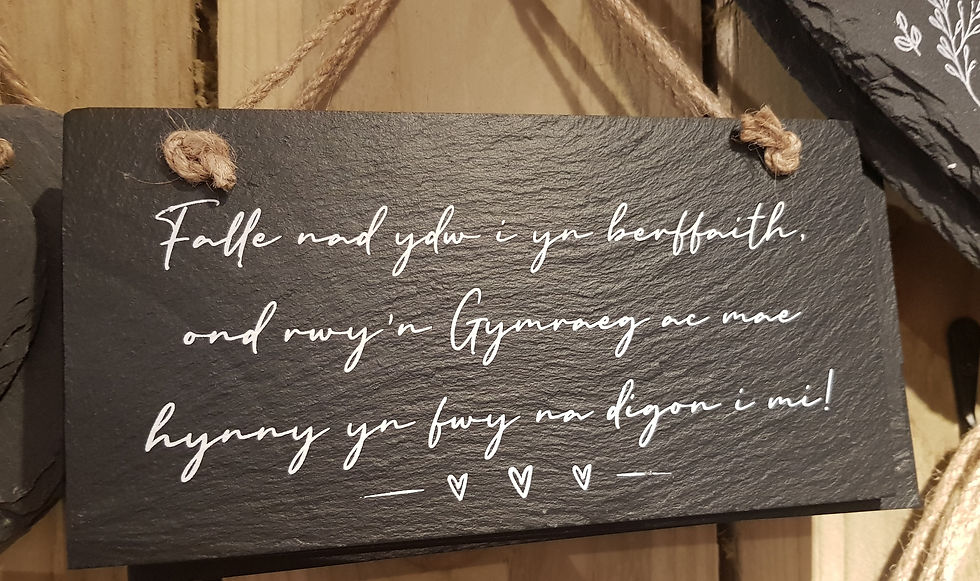 Falle nad ydw i yn berffaith,
ond rwy'n Gymraeg ac mae
hynny yn fwy na digon i mi!